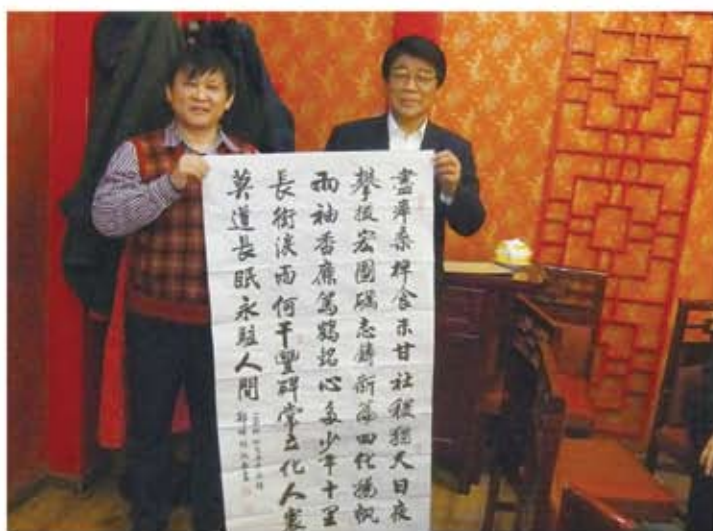 盡瘁桑梓食未甘社稷猶天日夜
攀援宏圖礪志鑄新篇四化揚帆
兩袖香廉鶴銘心多少年十里
長街淚雨何干豐碑常立化人寰
莫道長眠永駐人間